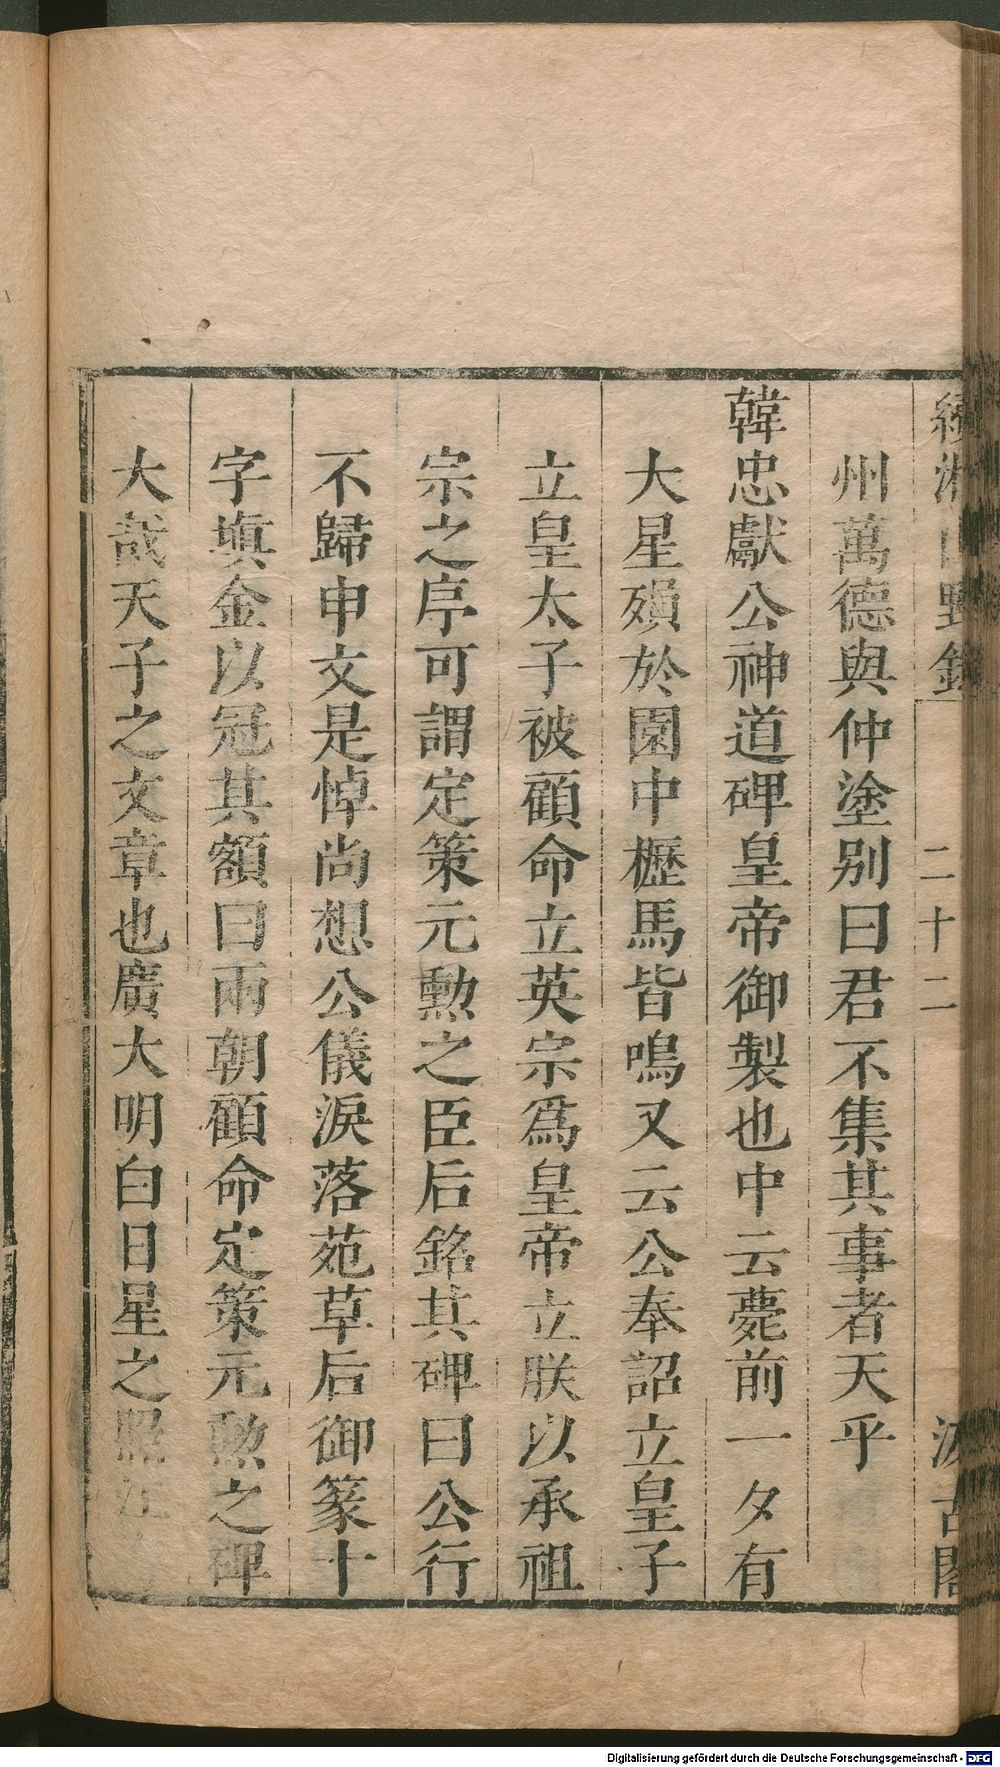 續湘山野錄 二十二 汲古閣
州萬德與仲塗别曰君不集其事者天乎
韓忠獻公神道碑皇帝御製也中云薨前一夕有
大星殞於園中櫪馬皆鳴又云公奉詔立皇子
立皇太子被顧命立英宗爲皇帝立朕以承祖
宗之序可謂定策元勲之臣后銘其碑曰公行
不歸申文是悼尚想公儀淚落苑草后御篆十
字塡金以冠其額曰兩朝顧命定策元勲之碑
大哉天子之文章也廣大明白日星之照江
Digitalisierung gefördert durch die Deutsche Forschungsgemeinschaft - DFG